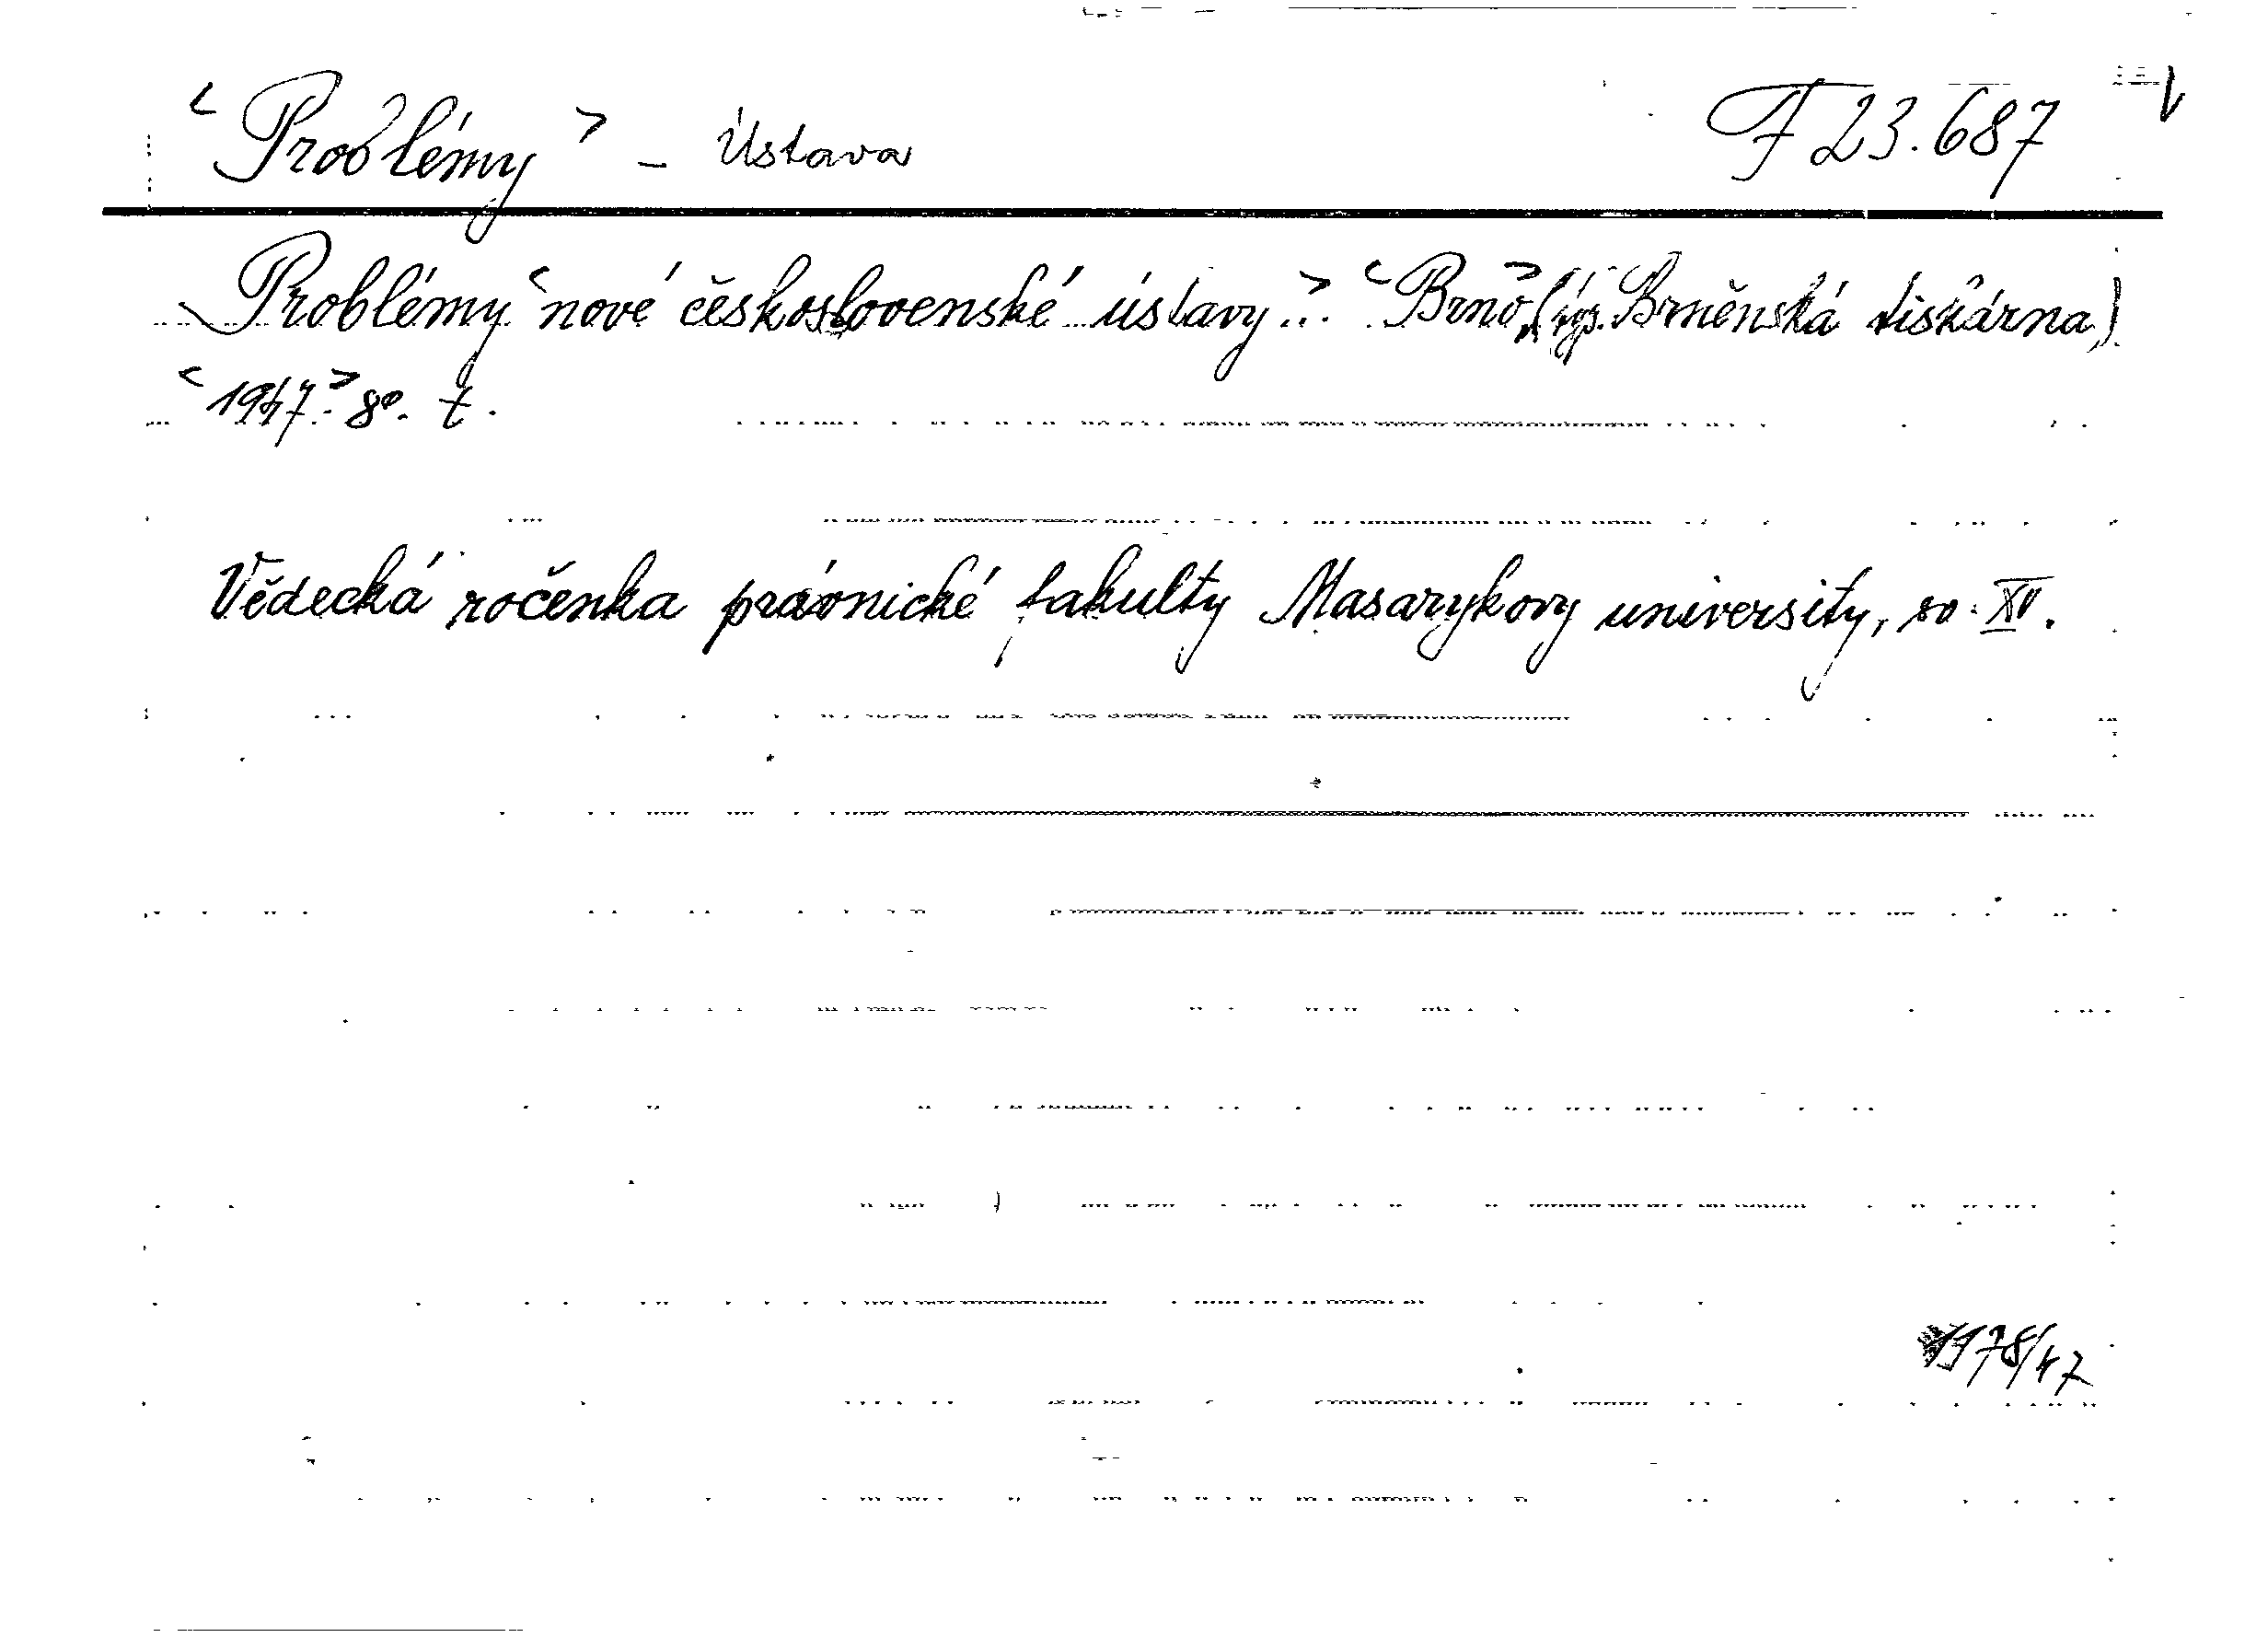 <Problémy> - Ústava F 23.687
Problémy <nové československé ústavy...> <Brno>, (typ. Brněnská tiskárna)
<1947.> 8°. t.
Vědecká ročenka právnické fakulty Masarykovy university, sv. XV.
1178/47